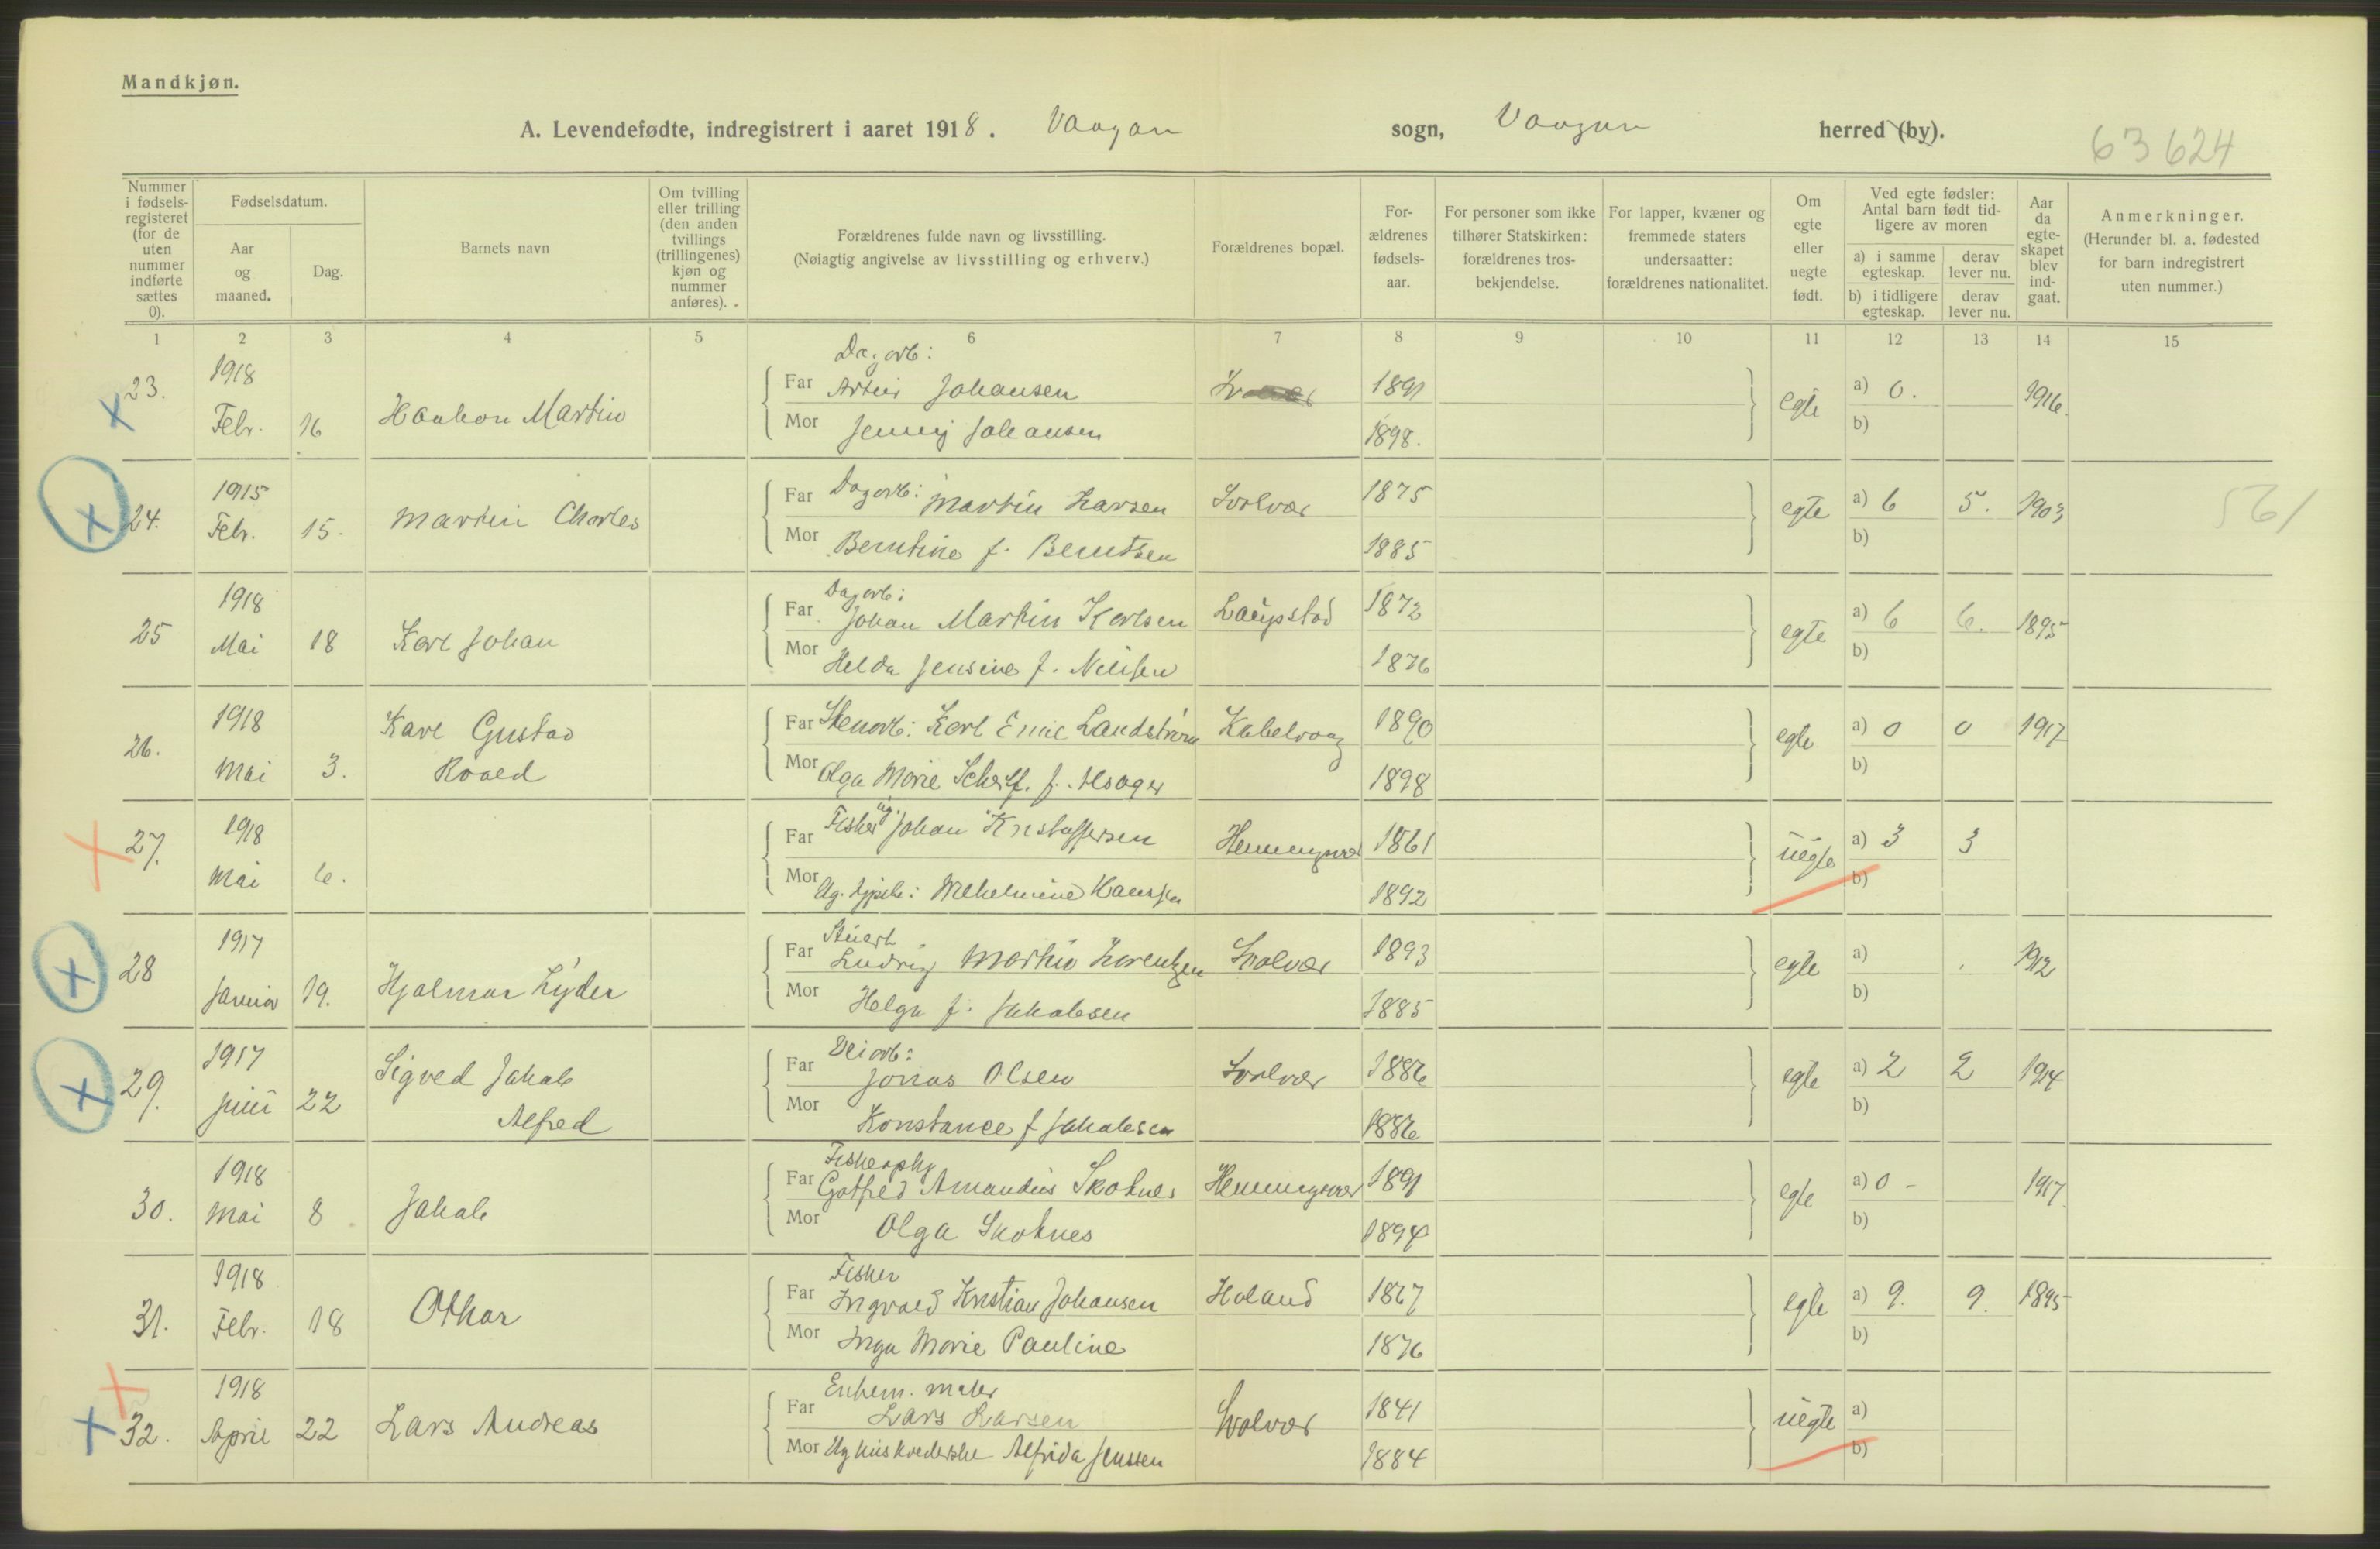 Mandkjøn.
A. Levendefødte, indregistrert i aaret 1918. Vaagan sogn, Vaagan herred (by).
63 624
Nummer i fødsels-registeret (for de uten nummer indførte sættes 0).
Fødselsdatum.
Aar og maaned.
Dag.
Barnets navn
Om tvilling eller trilling (den anden tvillings (trillingenes) kjøn og nummer anføres).
Forældrenes fulde navn og livsstilling.
(Nøiagtig angivelse av livsstilling og erhverv.)
Forældrenes bopæl.
For-ældrenes fødsels-aar.
For personer som ikke tilhører Statskirken: forældrenes tros-bekjendelse.
For lapper, kvæner og fremmede staters undersaatter: forældrenes nationalitet.
Om egte eller uegte født.
Ved egte fødsler: Antal barn født tid-ligere av moren
a) i samme egteskap.
derav lever nu.
b) i tidligere egteskap.
derav lever nu.
Aar da egte-skapet blev ind-gaat.
Anmerkninger.
(Herunder bl. a. fødested for barn indregistrert uten nummer.)
1 2 3 4 5 6 7 8 9 10 11 12 13 14 15
Dagarb:
23. 1918 Far Johansen 1891 a) 0. 1916.
Febr. 16 Haakon Martin egte
Mor Jenny Johansen 1898. b)
24. 1915 Far Dagarb: Martin Larsen Svolvær 1875 a) 6 5. 1903
Febr. 15. Martin Charles egte 561
Mor Berntine f. Berntsen 1885 b)
Dagarb:
25 1918 Far Johan Martin Karlsen Laupstad 1872 a) 6 6. 1895
Mai 18 Karl Johan egte
Mor Helda Jensine f. Nilsen 1876 b)
26. 1918 Karl Gustav Far Stenarb: Karl Emil Landstrøm Kabelvaag 1890 a) 0 0 1917
Mai 3. Roald egte
Mor Olga Marie f. 1898 b)
27. 1918 Far Fisker ug. Johan Kristoffersen Henningsvær 1861 a) 3 3
Mai 6. uegte
Mor Ug. Wilhelmine 1892 b)
28 1917 Far Ludvig Martin Lorentzen Svolvær 1893 a) 1912
Januar 19. Hjalmar Lyder egte
Mor Helga f. Jakobsen 1885 b)
29. 1917 Sigved Jakob Far Jonas Olsen Svolvær 1886 a) 2 2 1914
Juni 22 Alfred egte
Mor Konstance f Jakobsen 1886 b)
30. 1918 Far Gotfred Amandus Skotnes Henningsvær 1891 a) 0 - 1917.
Mai 8 Jakob egte
Mor Olga Skotnes 1894 b)
Fisker
31. 1918 Far Ingvald Kristian Johansen Holand 1867 a) 9. 9. 1895
Febr. 18 Othar egte
Mor Inga Marie Pauline 1876 b)
Enkem. maler
32. 1918 Far Lars Larsen Svolvær 1841 a)
April 22 Lars Andreas uegte
Mor Ug Alfrida Jenssen 1884 b)